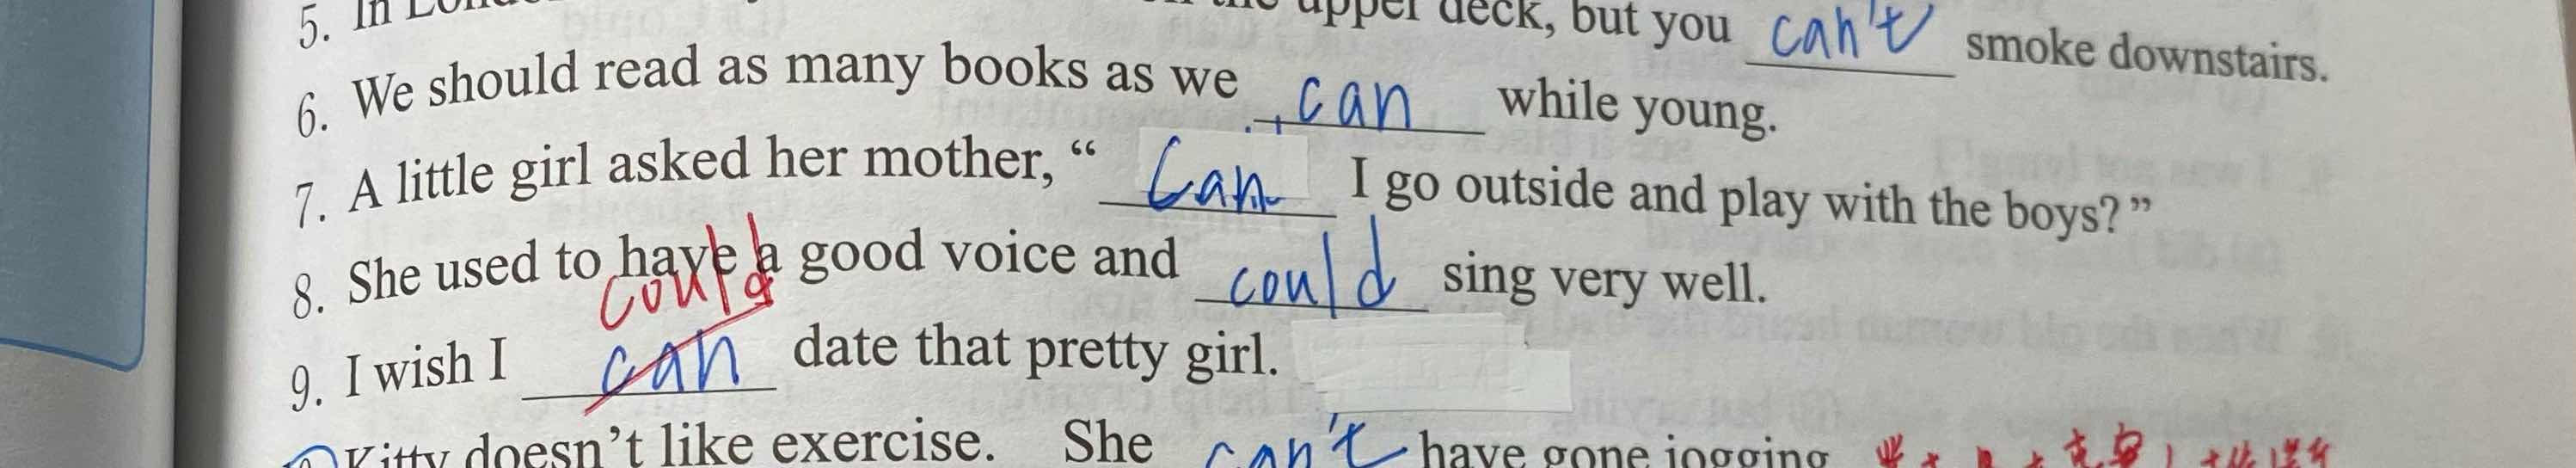 5. In upper deck, but you can't smoke downstairs.
6. We should read as many books as we can while young.
7. A little girl asked her mother, “ Can I go outside and play with the boys?”
8. She used to have a good voice and could sing very well.
could
9. I wish I can date that pretty girl.
Kitty doesn't like exercise. She can't have gone jogging